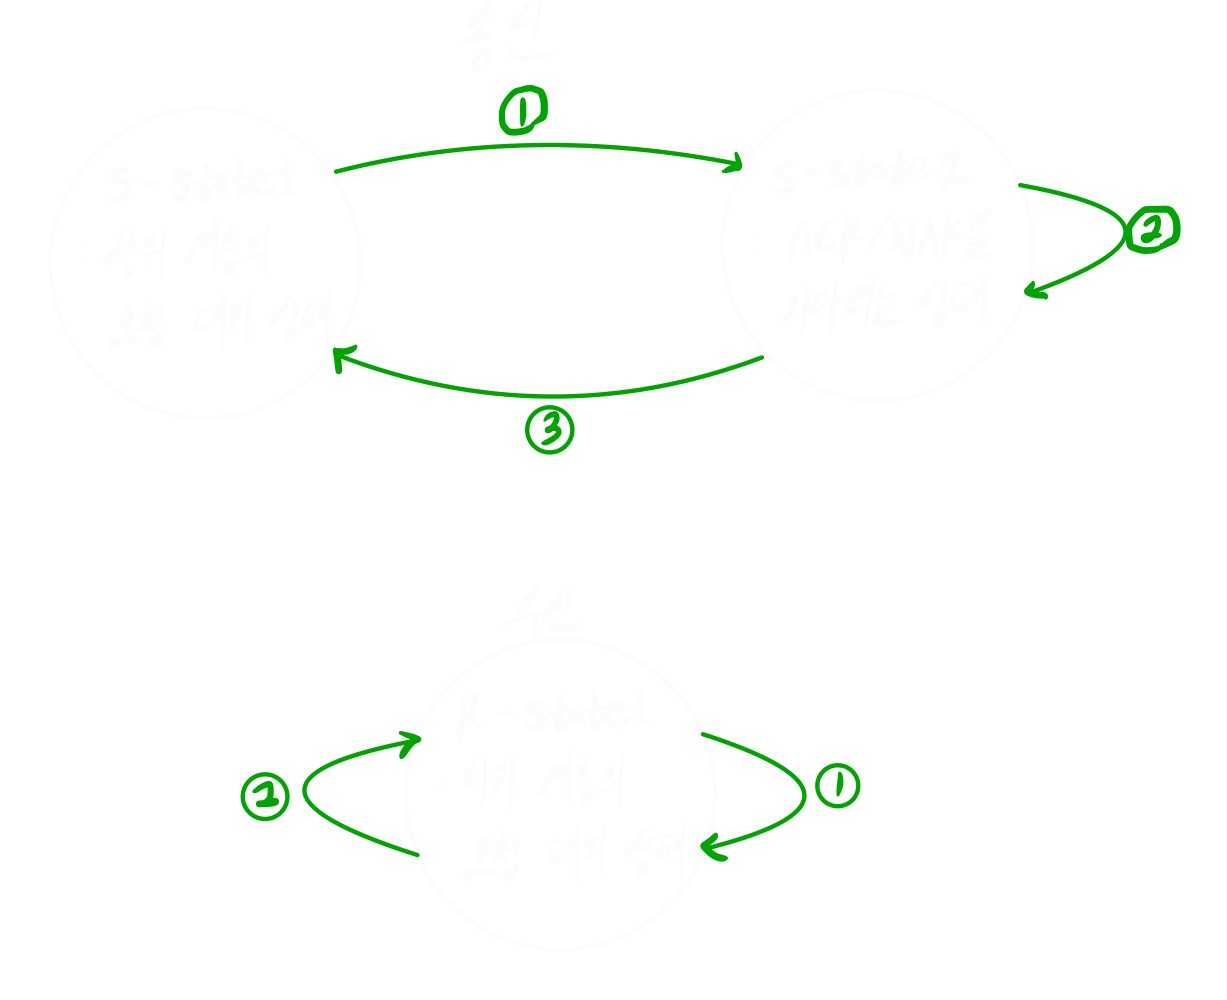 송신
①
S-state1
: 상위 계층의
요청 대기 상태
S-state2
: ACK/NAK를
기다리는 상태
②
③
수신
R-state1
: 하위 계층의
요청 대기 상태
②
①